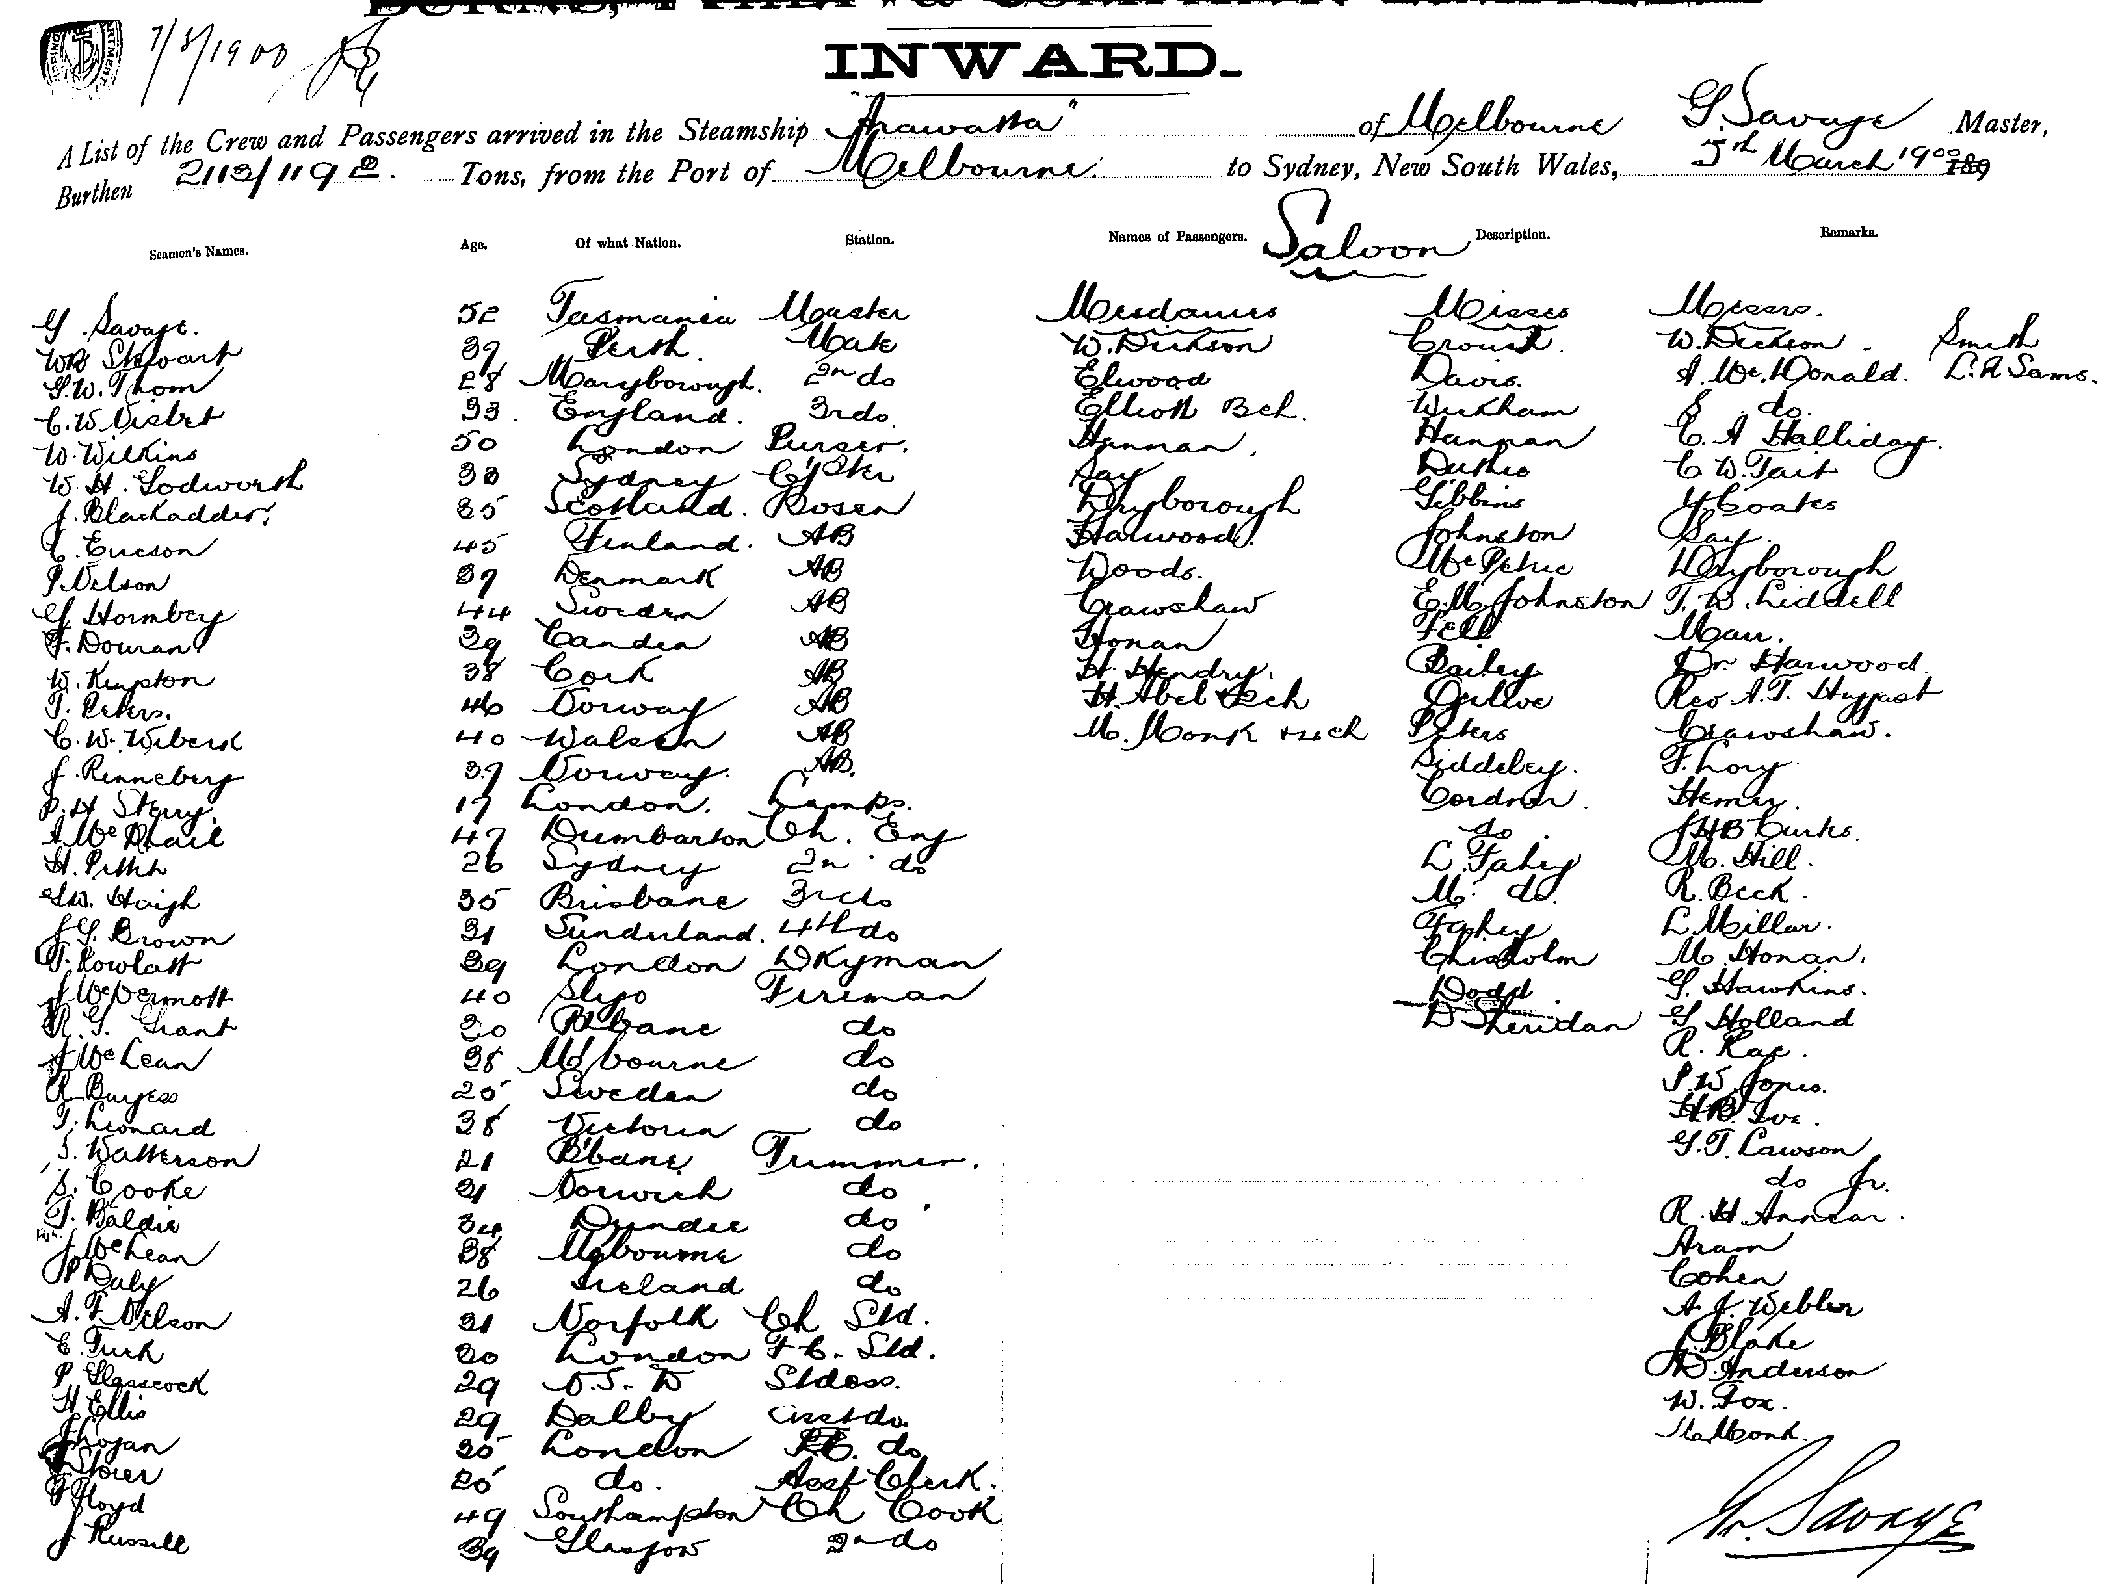 7/3/1900
INWARD.
A List of the Crew and Passengers arrived in the Steamship "Arawatta" of Melbourne G. Savage Master,
Burthen 2113/119 Tons, from the Port of Melbourne to Sydney, New South Wales, 5th March 1900 189
Seamen's Names. Age. Of what Nation. Station. Names of Passengers. Saloon Description. Remarks.
G. Savage. 52 Tasmania Master Mesdames Misses Messrs.
WB Stewart 39 Perth. Mate W. Dickson Crouch. W. Dickson. Smith
G.W. Thom 28 Maryborough. 2nd do Elwood Davis. A. McDonald. L.A Sams.
C. W Nisbet 33. England. 3rd do. Elliott & ch. Wickham do.
W. Wilkins 50 London Purser. Hannan. Hannan C. A Halliday.
W. H. Lodworth 30 Sydney Say Duthie C W. Tait
J. Blackadder. 35 Scotland. Bosen Dryborough Gibbins Coates
C. Ericson 45 Finland. AB Harwood. Johnston Say.
P. Nelson 39 Denmark AB Woods. McPetrie Dryborough
G Hormbey 44 Sweden AB Crawshaw E. M. Johnston T. W. Liddell
J. Douran 39 Camden AB Honan Fell Marr.
W. Kempton 38 Cork AB H. Hendry. Bailey Dr Harwood
T. Peters. 46 Norway AB H. Abel & ch Ogilvie Rev A. T.
C. W. Wiberk 40 Walsen AB M. Monk & ch Peters Crawshaw.
J. Renneberg 39 Norway. AB. Siddeley. F. Lory
H Sterry. 17 London. Lamps. Cordner. Hemer.
A McPhail 47 Dumbarton Ch. Eng do. JHB Curks.
H. Pettit 26 Sydney 2nd do L. Fahey M. Hill.
W. Haigh 35 Brisbane 3rd do M. do. R. Beck.
J G. Brown 31 Sunderland. 4th do Fahey L. Millar.
T. Rowlatt 39 London Dkyman Chisholm M. Honan.
J McDermott 40 Sligo Fireman Dodd. G. Hawkins.
R. G. Grant 30 B'bane do D Sheridan G Holland
J McLean 38 Melbourne do R. Rae.
R Burgess 25 Sweden do P. W. Jones.
T. Leonard 38 Victoria do H B.
S. Watterson 21 B'bane Trimmer. G. T. Lawson
S. Cooke 21 Norwich do do Jr.
T. Baldie 34 Dundee do R. H Annear.
J McLean 38 Melbourne do Aram
P Daly 26 Ireland do Cohen
A. F Nilson 31 Norfolk Ch Std. A. J. Webber
E. Turk 30 London F C. Std. J. Blake
P. Glasscock 29 N. S. W Stdess. D. Anderson
H Ellis 29 Dalby Asst do. W. Fox.
J Logan 25 London F.C. do M. Monk.
J Storer 25 do. Asst Clerk.
F Floyd 49 Southampton Ch Cook
J Russell 39 Glasgow 2nd do
G. Savage